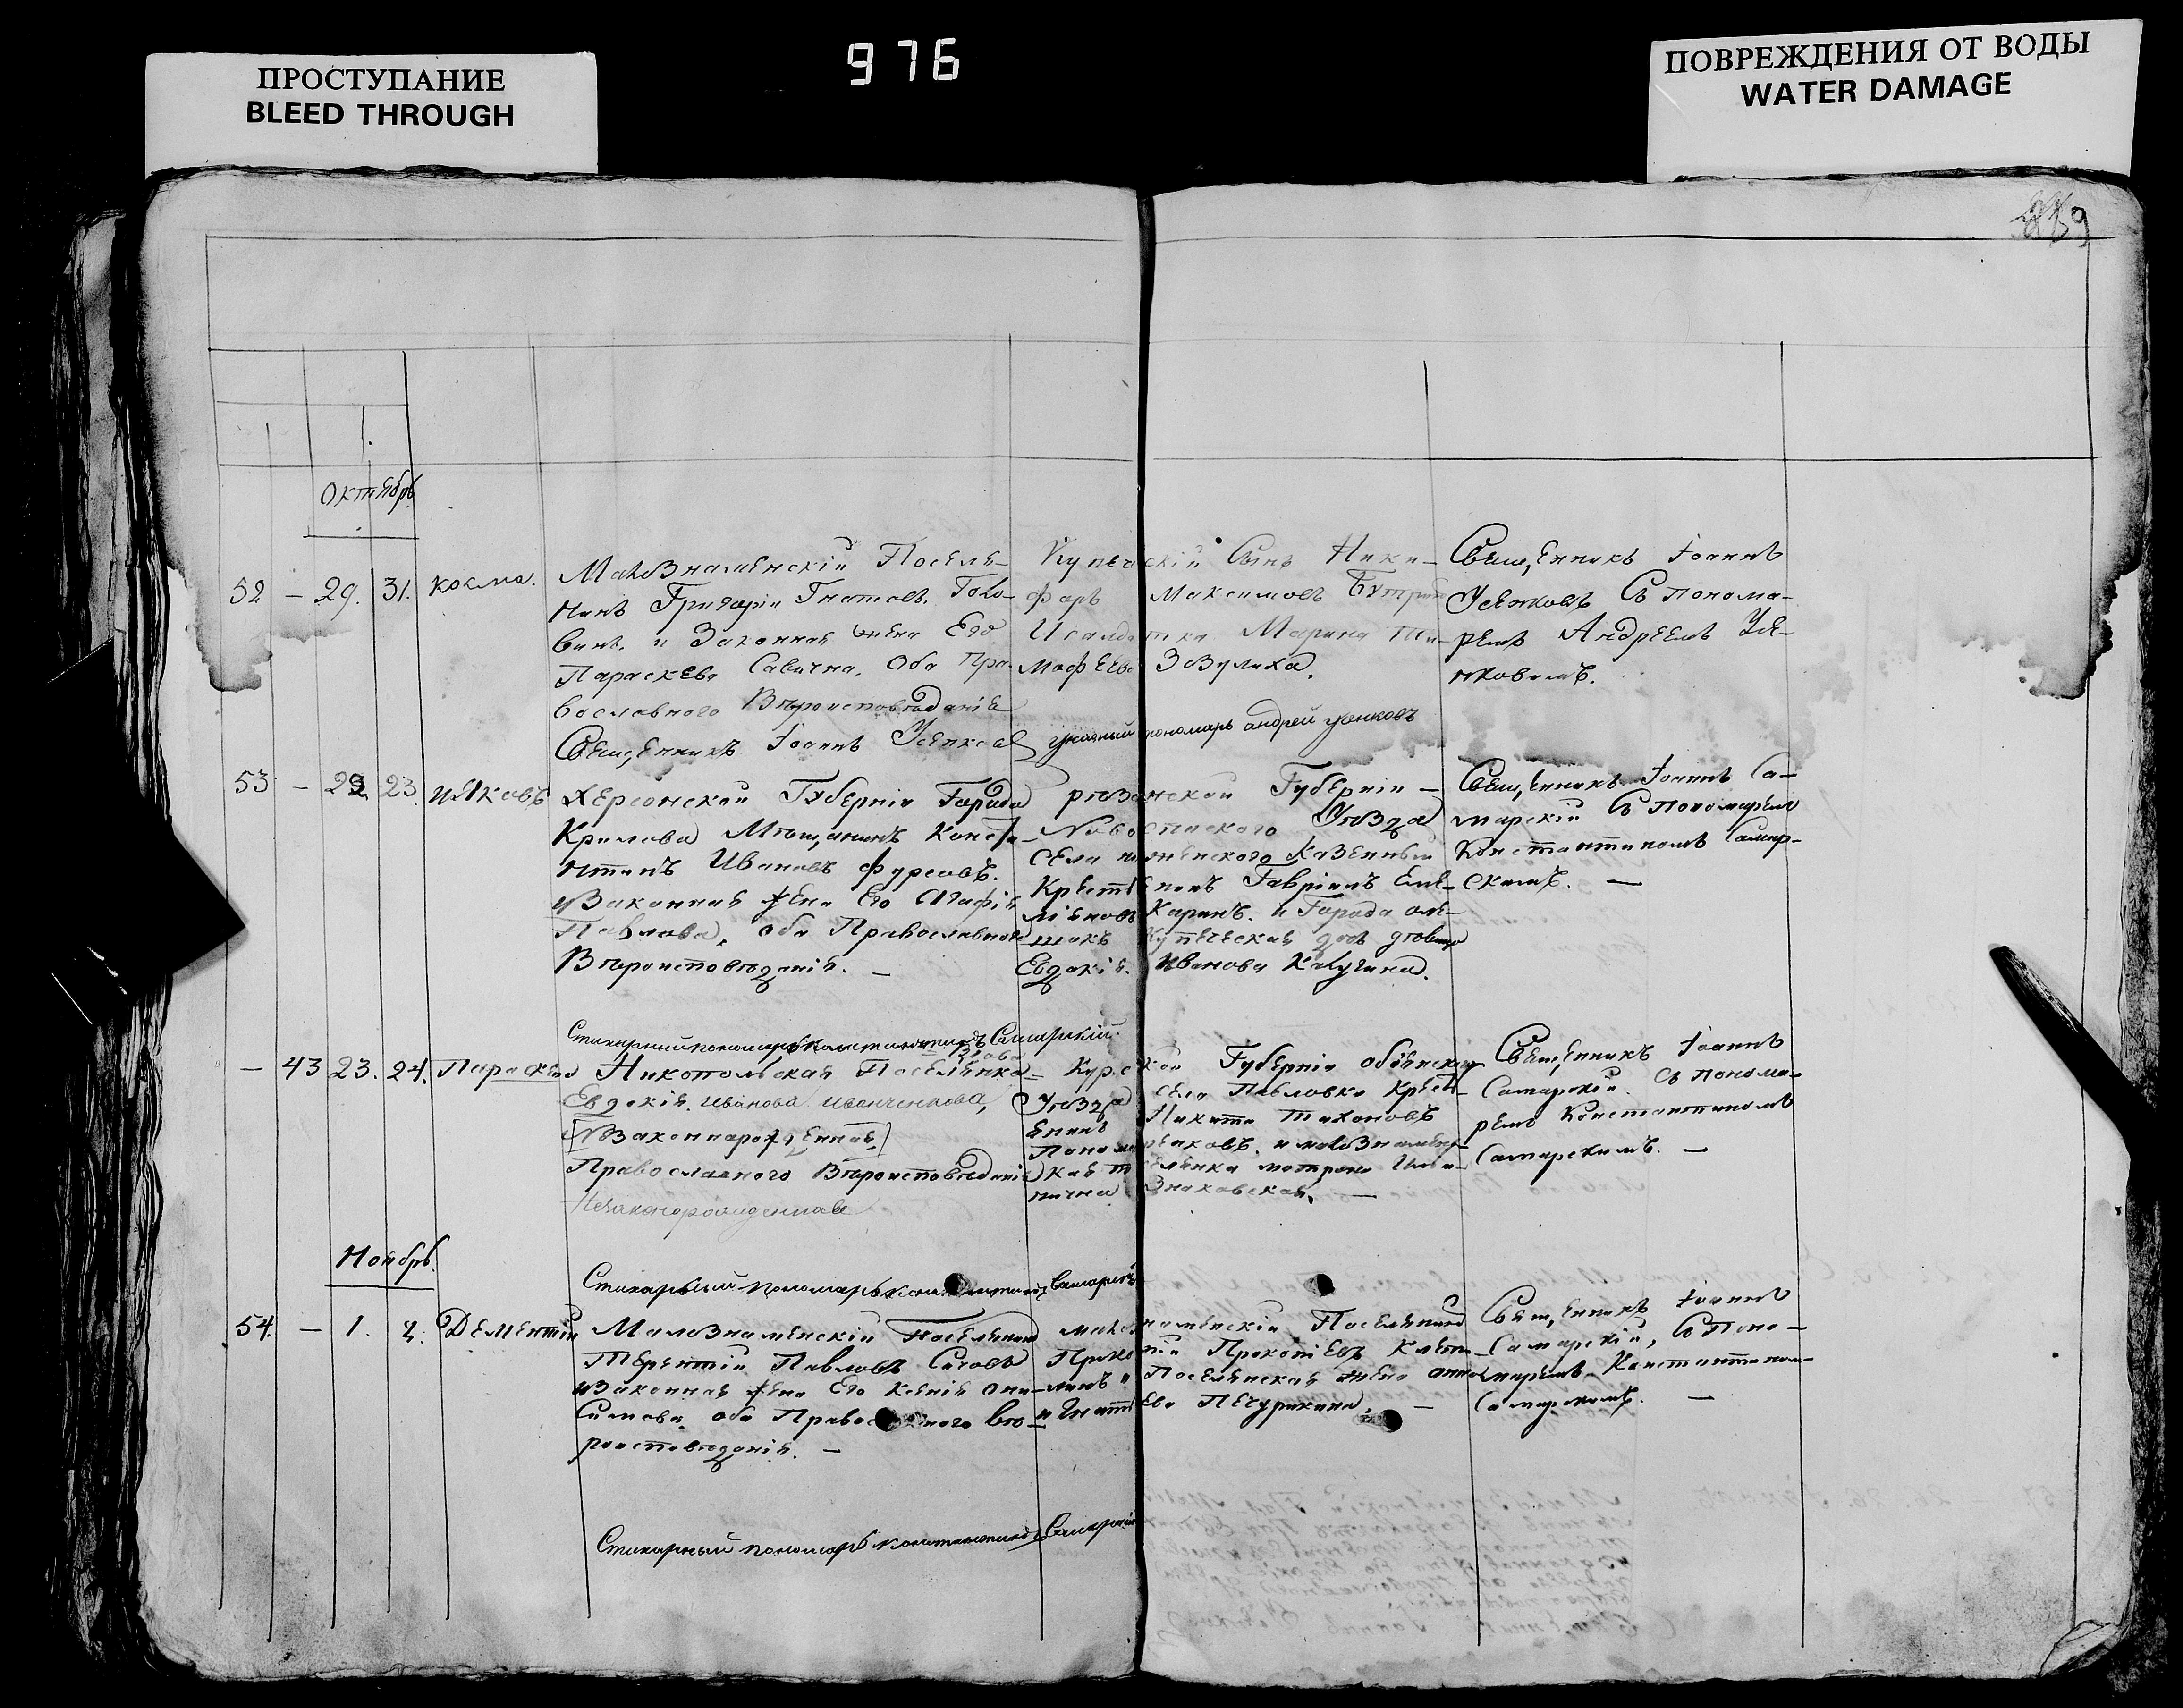 ПРОСТУПАНИЕ
BLEED THROUGH
976
ПОВРЕЖДЕНИЯ ОТ ВОДЫ
WATER DAMAGE
Октябрь
52 — 29. 31. косма.
Малознаменскій Поселя-
нинъ Григорій Гнатовъ Голо-
винъ. и Законная жена Его
Параскева Савична, Оба Пра-
вославного Вѣроисповѣданія
Священникъ Іоаннъ Усенковъ
Купеческій Сынъ Ники-
форъ Максимовъ
И салдатка Марина Ти-
мофеева Зозулиха.
указный пономарь андрей усенковъ
Священникъ Іоаннъ
Усенковъ Съ понома-
ремъ Андреемъ Усе-
нковымъ.
53 — 22 23. иаковъ
Херсонской Губерніи Города
Крилова Мѣщанинъ Конста-
нтинъ Ивановъ Фурсовъ.
иЗаконная жена Его Агафія
Павлова, оба Православного
Вѣроисповѣданія. —
рязанской Губерніи —
Уѣзда
села Казенный
Крестьянинъ Гавріилъ Еме-
ліановъ Каринъ. и Города оле-
шокъ Купеческая дочь девица
Евдокія. Иванова Калугина.
Священникъ Іоаннъ Са-
марскій Съ пономаремъ
Константиномъ Самар-
скимъ. —
Стихарный пономарь Константинъ Самарскій
— 43 23. 24. Параскева
Никопольская Поселянка
Евдокія. Иванова Иванченкова,
[Незаконнарожденная]
Православного Вѣроисповѣданія
Незаконорожденная
Курской Губерніи обоянского
Уѣзда села Павловки Крест-
янинъ Никита Тихоновъ
Пономаренковъ. и малознаменс-
кая поселянка матрона
Знаковская. —
Священникъ Іоаннъ
Самарскій Съ понома-
ремъ Константиномъ
Самарскимъ. —
Ноябрь.
Стихарный пономарь Константинъ Самарскій
54. — 1. 4. Дементій
Малознаменскій Поселянинъ
Терентій Павловъ Сиговъ
иЗаконная жена Его Ксенія Они-
симова оба Православного Вѣ-
роисповѣданія. —
малознаменскій Поселянинъ
Прокопій Прокопіевъ
и Поселянская жена анна
Игнатьева Печурикина. —
Священникъ Іоаннъ
Самарскій, Съ Поно-
маремъ Константином-
Самарскимъ. —
Стихарный пономарь константинъ Самарскій